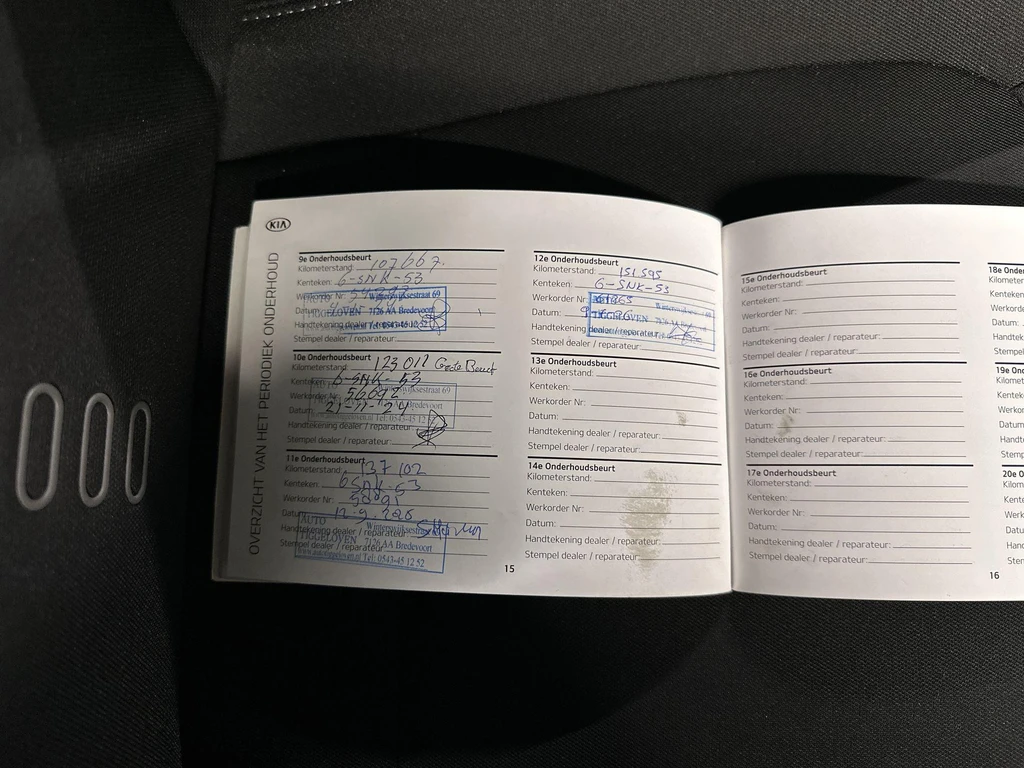 KIA
OVERZICHT VAN HET PERIODIEK ONDERHOUD
9e Onderhoudsbeurt
Kilometerstand: 107667.
Kenteken: 6-SNK-53
Werkorder Nr:
Winterswijksestraat 69
Datum:
TIGGELOVEN 7126 AA Bredevoort
Handtekening dealer/reparateur: Tel: 0543-45 12 52
Stempel dealer / reparateur:
10e Onderhoudsbeurt
Kilometerstand: 123011 Grote Beurt
Kenteken: 6-SNK-53
Winterswijksestraat 69
Werkorder Nr: 56092
Datum: 21-11-24
AA Bredevoort
Tel: 0543-45 12 52
Handtekening dealer / reparateur:
Stempel dealer / reparateur:
11e Onderhoudsbeurt
Kilometerstand: 137 102
Kenteken: 6SNK-53
Werkorder Nr:
Datum:
AUTO Winterswijksestraat
Handtekening dealer / reparateur:
TIGGELOVEN 7126 AA Bredevoort
Stempel dealer / reparateur:
Tel: 0543-45 12 52
12e Onderhoudsbeurt
Kilometerstand: 151595
Kenteken: 6-SNK-53
Werkorder Nr:
Datum:
TIGGELOVEN 7126 AA Bredevoort
Handtekening dealer/reparateur:
Stempel dealer / reparateur:
13e Onderhoudsbeurt
Kilometerstand:
Kenteken:
Werkorder Nr:
Datum:
Handtekening dealer / reparateur:
Stempel dealer / reparateur:
14e Onderhoudsbeurt
Kilometerstand:
Kenteken:
Werkorder Nr:
Datum:
Handtekening dealer / reparateur:
Stempel dealer / reparateur:
15
15e Onderhoudsbeurt
Kilometerstand:
Kenteken:
Werkorder Nr:
Datum:
Handtekening dealer / reparateur:
Stempel dealer / reparateur:
16e Onderhoudsbeurt
Kilometerstand:
Kenteken:
Werkorder Nr:
Datum:
Handtekening dealer / reparateur:
Stempel dealer / reparateur:
17e Onderhoudsbeurt
Kilometerstand:
Kenteken:
Werkorder Nr:
Datum:
Handtekening dealer / reparateur:
Stempel dealer / reparateur:
18e On
Kilomet
Kenteke
Werkord
Datum:
Handte
Stempe
19e On
Kilome
Kentek
Werko
Datum
Handt
Stemp
20e O
Kilom
Kente
Werk
Datu
Hanc
Sten
16